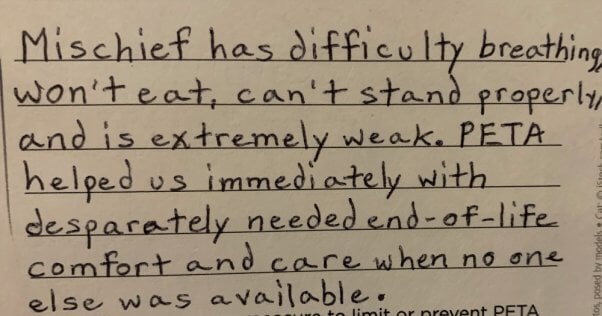 Mischief has difficulty breathing,
won't eat, can't stand properly,
and is extremely weak. PETA
helped us immediately with
desparately needed end-of-life
comfort and care when no one
else was available.
to limit or prevent PETA
posed by models • Cat: © iStock